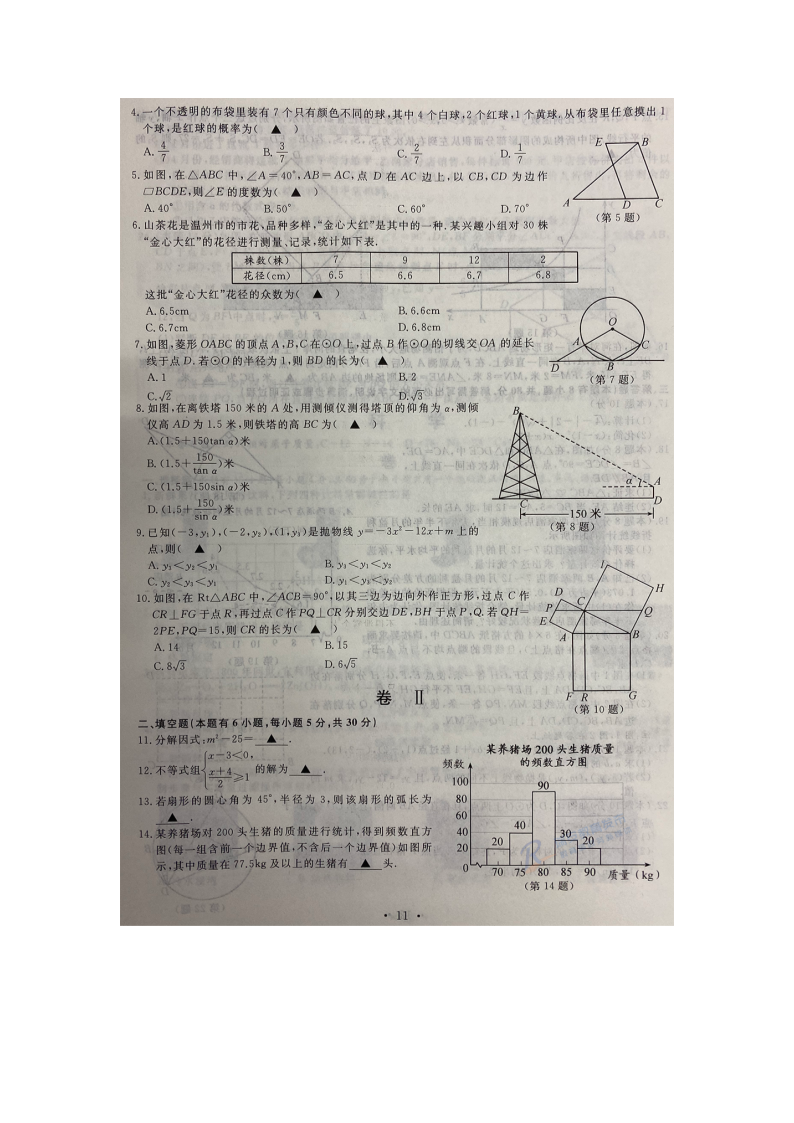 4.一个不透明的布袋里装有7个只有颜色不同的球,其中4个白球,2个红球,1个黄球.从布袋里任意摸出1
个球,是红球的概率为( ▲ )
A. 4/7 B. 3/7 C. 2/7 D. 1/7
5.如图,在△ABC中,∠A=40°,AB=AC,点D在AC边上,以CB,CD为边作
▱BCDE,则∠E的度数为( ▲ )
A. 40° B. 50° C. 60° D. 70°
E B
A D C
(第5题)
6.山茶花是温州市的市花、品种多样,“金心大红”是其中的一种.某兴趣小组对30株
“金心大红”的花径进行测量、记录,统计如下表.
株数(株) 7 9 12 2
花径(cm) 6.5 6.6 6.7 6.8
这批“金心大红”花径的众数为( ▲ )
A. 6.5cm B. 6.6cm
C. 6.7cm D. 6.8cm
7.如图,菱形OABC的顶点A,B,C在⊙O上,过点B作⊙O的切线交OA的延长
线于点D.若⊙O的半径为1,则BD的长为( ▲ )
A. 1 B. 2
C. √2 D. √3
O
A C
D B
(第7题)
8.如图,在离铁塔150米的A处,用测倾仪测得塔顶的仰角为α,测倾
仪高AD为1.5米,则铁塔的高BC为( ▲ )
A. (1.5+150tan α)米
B. (1.5+150/tan α)米
C. (1.5+150sin α)米
D. (1.5+150/sin α)米
B
α A
C D
150米
(第8题)
9.已知(-3,y₁),(-2,y₂),(1,y₃)是抛物线 y=-3x²-12x+m上的
点,则( ▲ )
A. y₃<y₂<y₁ B. y₃<y₁<y₂
C. y₂<y₃<y₁ D. y₁<y₃<y₂
10.如图,在Rt△ABC中,∠ACB=90°,以其三边为边向外作正方形,过点C作
CR⊥FG于点R,再过点C作PQ⊥CR分别交边DE,BH于点P,Q.若QH=
2PE,PQ=15,则CR的长为( ▲ )
A. 14 B. 15
C. 8√3 D. 6√5
I
H
D C
P Q
E
A B
F R G
(第10题)
卷 Ⅱ
二、填空题(本题有6小题,每小题5分,共30分)
11.分解因式:m²-25= ▲ .
12.不等式组{x-3<0, (x+4)/2≥1 的解为 ▲ .
13.若扇形的圆心角为45°,半径为3,则该扇形的弧长为
▲ .
14.某养猪场对200头生猪的质量进行统计,得到频数直方
图(每一组含前一个边界值,不含后一个边界值)如图所
示,其中质量在77.5kg及以上的生猪有 ▲ 头.
某养猪场200头生猪质量
的频数直方图
频数
100
80
60
40
20
0
20 40 90 30 20
70 75 80 85 90 质量(kg)
(第14题)
· 11 ·